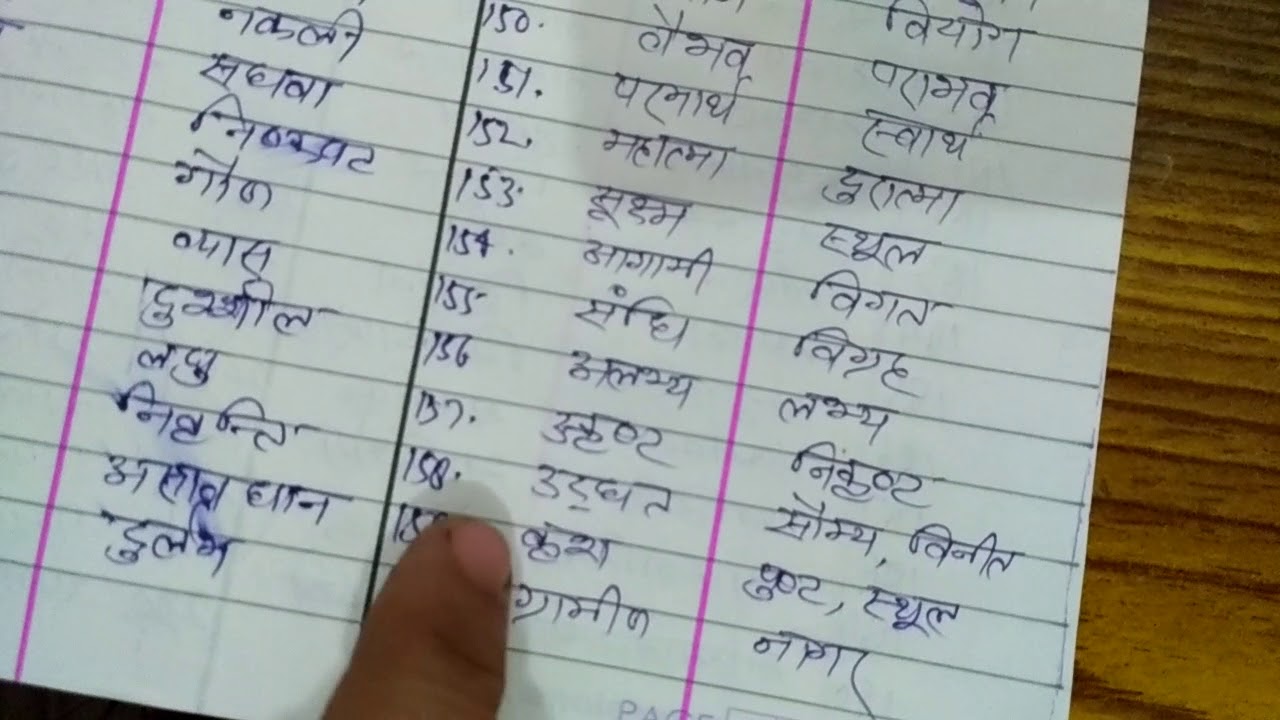 वियोग
150. वैभव पराभव
नकली 151. परमार्थ स्वार्थ
सधवा 152. महात्मा दुरात्मा
निष्कपट 153. सूक्ष्म स्थूल
गौण 154. आगामी विगत
व्यास 155 संधि विग्रह
दुश्शील 156 अलभ्य लभ्य
लघु 157. उत्कृष्ट निकृष्ट
निवृत्ति 158. उद्धत सौम्य, विनीत
असावधान कृश पुष्ट, स्थूल
दुर्लभ ग्रामीण नागर
PAGE